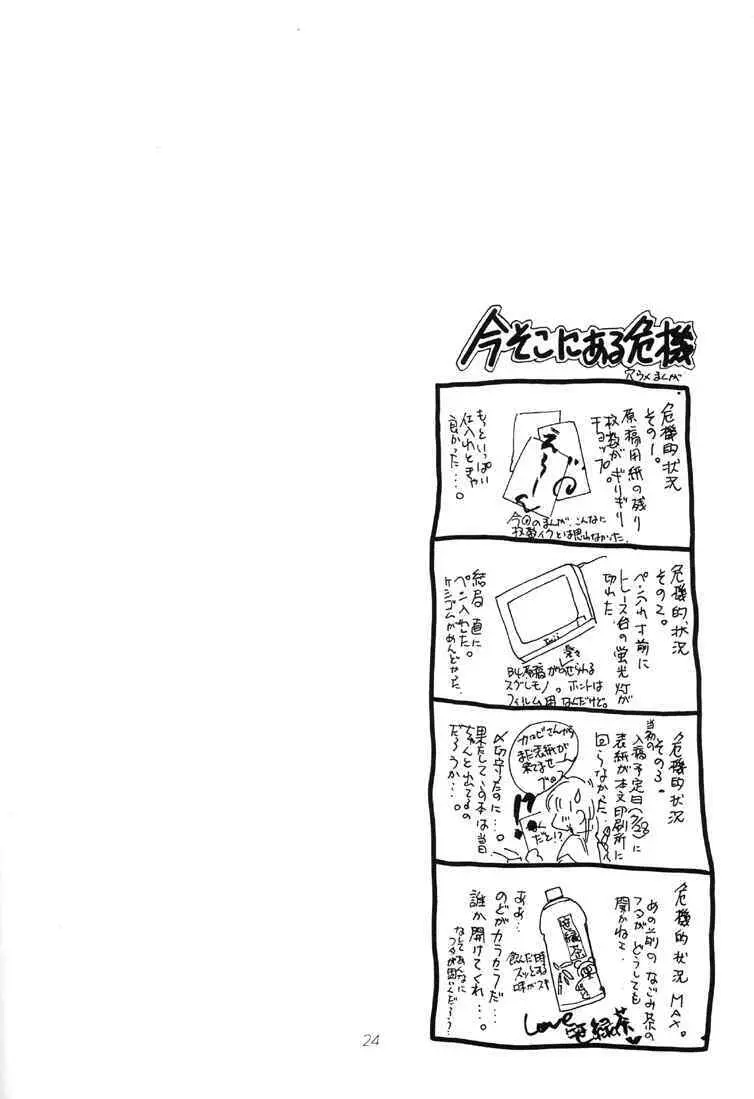 今そこにある危機
穴うめまんが
危機的状況
その1。
原稿用紙の残り
枚数がギリギリ
チョップ。
えーん
もっといっぱい
仕入れときゃ
良かった…。
今回のまんが、こんなに
枚数イクとは思わなかった。
危機的状況
その2。
ペン入れ寸前に
トレース台の蛍光灯が
切れた。
B4原稿がのせられる
スグレモノ。ホントは
フィルム用なんだけど。
結局直に
ペン入れした。
ケシゴムがめんどやった。
危機的状況
その3。
当初の
入稿予定日(7/28)に
表紙が本文印刷所に
回らなかった。
カラビさんから
まだ表紙が
来てませーん
!?
なんだと!?
〆切守ったのに…。
果たしてこの本は当日
ちゃんと出てるの
だろうか…。
危機的状況MAX。
あの激のなごみ茶の
フタがどうしても
開かねえ。
笹緑茶
飲んだ時
スッとする
味がスキ
Love笹緑茶
ああ…
のどがカラカラだ…
誰か開けてくれ…。
なしてあんなに
フタが固いんだろう?
24